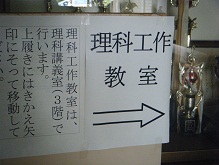 理科工作
教室
理科工作教室は、
理科講義室(3階)で
行います。
上履きにはきかえ矢
印にそって移動して